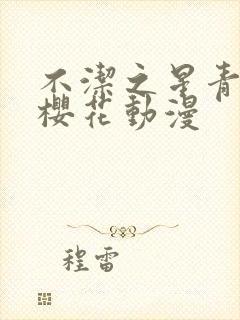 不潔之星青
櫻花動漫
程雷